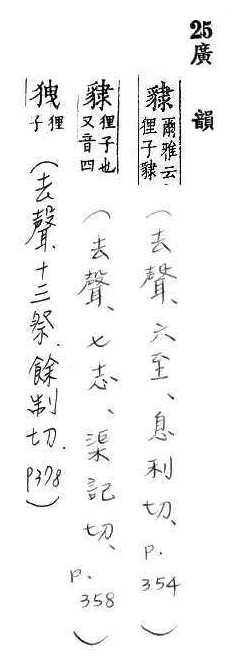 25廣韻
貄爾雅云貍子貄(去聲、六至、息利切、p.354)
貄狸子也又音四(去聲、七志、渠記切、p.358)
狵狸子(去聲、十三祭、餘制切、p378)